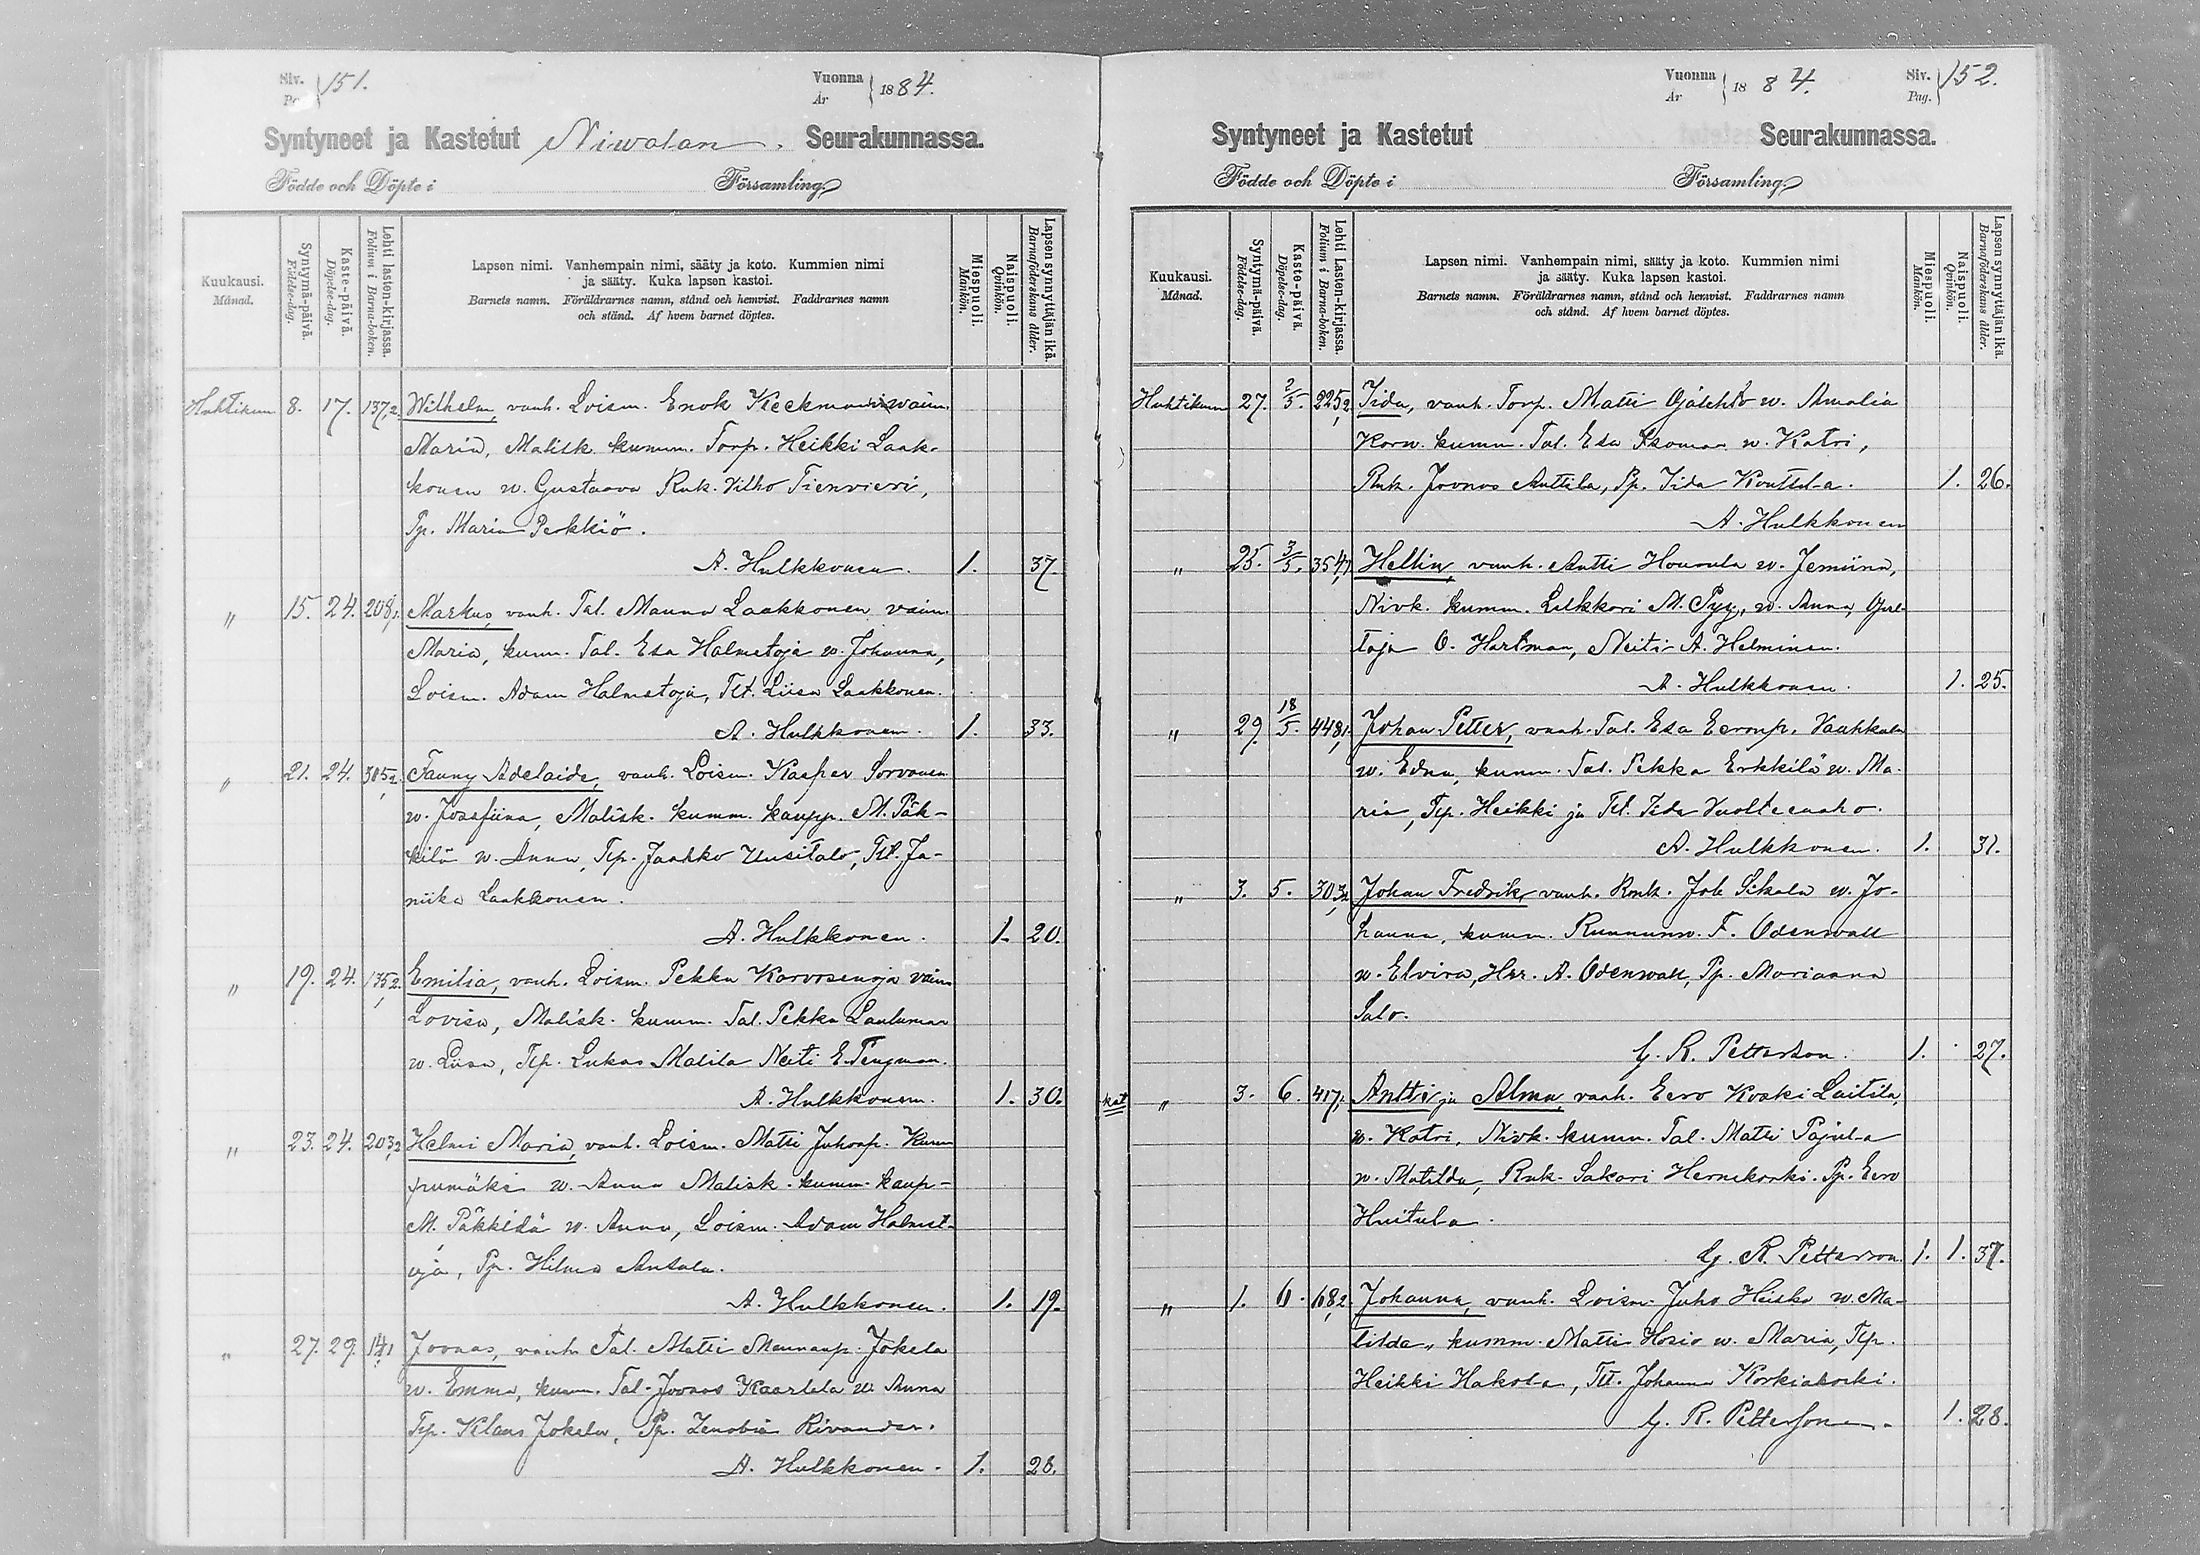 Siv. 151.
Vuonna 1884.
År
Syntyneet ja Kastetut Niwalan. Seurakunnassa.
Födde och Döpte i Församling
Kuukausi. Månad.
Syntymä-päivä. Födelse-dag.
Kaste-päivä. Döpelse-dag.
Lehti lasten-kirjassa. Folium i Barna-boken.
Lapsen nimi. Vanhempain nimi, sääty ja koto. Kummien nimi
ja sääty. Kuka lapsen kastoi.
Barnets namn. Föräldrarnes namn, stånd och hemvist. Faddrarnes namn
och stånd. Af hvem barnet döptes.
Miespuoli. Mankön.
Naispuoli. Qvinkön.
Lapsen synnyttäjän ikä. Barnaföderskans ålder.
Huhtikuun 8. 17. 137,2. Wilhelm, vanh. Loism. Enok Keckman vaim.
Maria, Malisk. kumm. Torp. Heikki Laak-
konen w. Gustaava Rnk. Vilho Tienvieri,
Pp. Maria Perkkiö.
A. Hulkkonen. 1. 37.
" 15. 24. 208,1. Markus, vanh. Tal. Mauno Laakkonen vaim.
Maria, kumm. Tal. Esa Halmetoja w. Johanna,
Loism. Adam Halmetoja, Tlt. Liisa Laakkonen.
A. Hulkkonen. 1. 33.
" 21. 24. 305,2. Fanny Adelaide, vanh. Loism. Kasper Sorvonen
w. Josefiina, Malisk. kumm. kaupp. M. Päk-
kilä w. Anna, Tlp. Jaakko Uusitalo, Tlt. Ja-
niika Laakkonen.
A. Hulkkonen. 1. 20.
" 19. 24. 135,2. Emilia, vanh. Loism. Pekka Karvosenoja vaim
Lovisa, Malisk. kumm. Tal. Pekka Lauluman
w. Liisa, Tlp. Lukas Malila Neiti E. Tengman.
A. Hulkkonen. 1. 30.
" 23. 24. 203,2 Helmi Maria, vanh. Loism. Matti Juhonp. Kum
pumäki w. Anna Malisk. kumm. kaup-
M. Päkkilä w. Anna, Loism. Adam Halmet-
oja, Pp. Hilma Ansala.
A. Hulkkonen. 1. 19.
" 27. 29. 141 Joonas, vanh. Tal. Matti Maunonp. Jokela
w. Emma, kumm. Tal. Joonas Kaarlela w. Anna
Tlp. Klaus Jokela, Pp. Zenobia Rivander.
A. Hulkkonen. 1. 28.
Vuonna 1884.
År
Siv. 152.
Pag.
Syntyneet ja Kastetut Seurakunnassa.
Födde och Döpte i Församling
Kuukausi. Månad.
Syntymä-päivä. Födelse-dag.
Kaste-päivä. Döpelse-dag.
Lehti Lasten-kirjassa. Folium i Barna-boken.
Lapsen nimi. Vanhempain nimi, sääty ja koto. Kummien nimi
ja sääty. Kuka lapsen kastoi.
Barnets namn. Föräldrarnes namn, stånd och hemvist. Faddrarnes namn
och stånd. Af hvem barnet döptes.
Miespuoli. Mankön.
Naispuoli. Qvinkön.
Lapsen synnyttäjän ikä. Barnaföderskans ålder.
Huhtikuun 27. 2/5. 225,2. Iida, vanh. Torp. Matti Ojalehto w. Amalia
Korw. kumm. Tal. Esa w. Katri,
Rnk. Joonas Anttila, Pp. Iida Konttila.
1. 26.
A. Hulkkonen
" 25. 3/5. 354,1 Hellin, vanh. Antti Hourula w. Jemiina,
Nivk. kumm. Lukkari M. Pyy, w. Anna, Opet-
taja O. Hartman, Neiti A. Helminen.
A. Hulkkonen. 1. 25.
" 29. 18/5. 448,1. Johan Petter, vanh. Tal. Esa Eeronp. Vaahkala
w. Edna, kumm. Tal. Pekka Erkkilä w. Ma-
ria, Tlp. Heikki ja Tlt. Iida Vuolteenaho.
A. Hulkkonen. 1. 31.
" 3. 5. 303,2 Johan Fredrik, vanh. Rnk. Job Sikala w. Jo-
hanna, kumm. Ruununv. F. Odenwall
w. Elvira, Hrr. A. Odenwall, Pp. Marianna
Salo.
G. R. Petterson. 1. 27.
kat " 3. 6. 417,1 Antti ja Alma, vanh. Eero Koski Laitila,
w. Katri, Nivk. kumm. Tal. Matti Pajula
w. Matilda, Rnk. Sakari Hernekoski. Pp. Eevo
Huitula.
G. R. Petterson 1. 1. 37.
" 1. 6. 68,2. Johanna, vanh. Loism. Juho Heisko w. Ma-
tilda, kumm. Matti Hosio w. Maria, Tlp.
Heikki Hakola, Tlt. Johanna Korkiakoski.
G. R. Petterson. 1. 28.